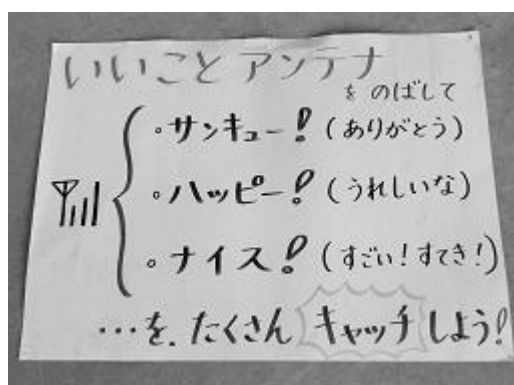 いいことアンテナ
をのばして
・サンキュー！（ありがとう）
・ハッピー！（うれしいな）
・ナイス！（すごい！すてき！）
…を．たくさん キャッチ しよう！